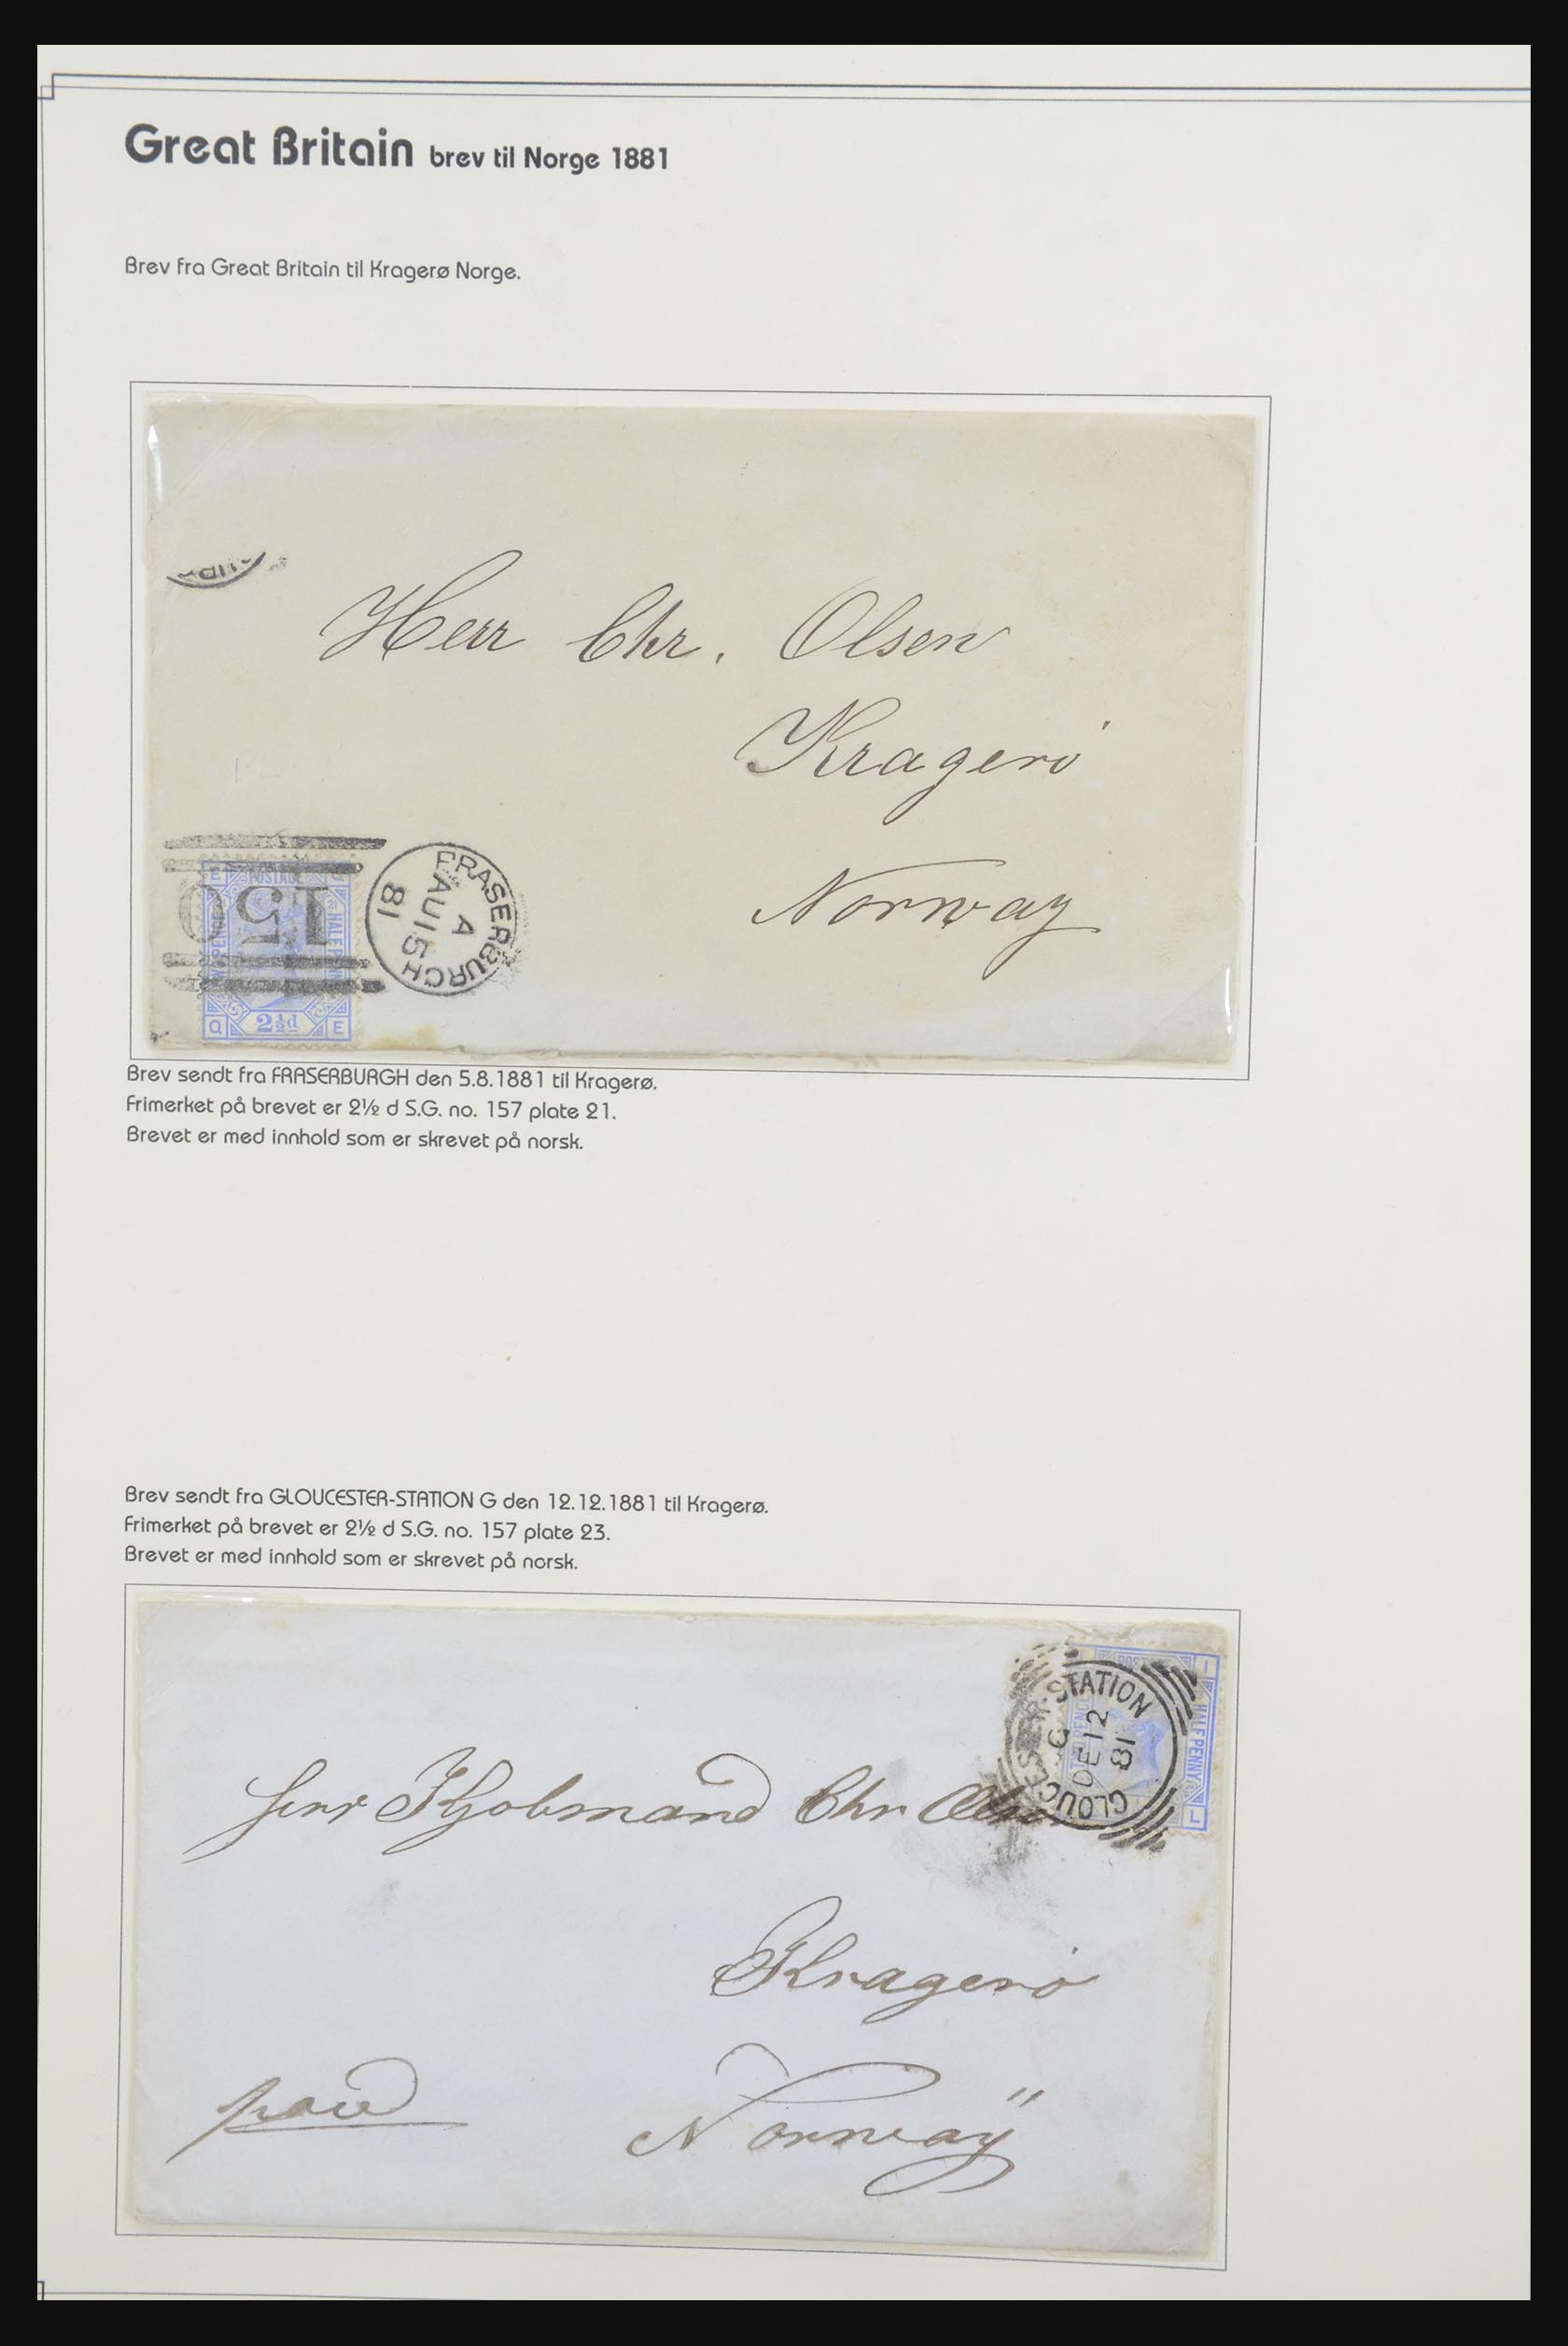 Great Britain brev til Norge 1881
Brev fra Great Britain til Kragerø Norge.
Herr Chr. Olsen
Kragerö
Norway
E POSTAGE Q
HALF PENNY
PENCE
Q 2½d E
150
FRASERBURGH
A
AU 15
81
Brev sendt fra FRASERBURGH den 5.8.1881 til Kragerø.
Frimerket på brevet er 2½ d S.G. no. 157 plate 21.
Brevet er med innhold som er skrevet på norsk.
Brev sendt fra GLOUCESTER-STATION G den 12.12.1881 til Kragerø.
Frimerket på brevet er 2½ d S.G. no. 157 plate 23.
Brevet er med innhold som er skrevet på norsk.
I
HALF PENNY
L
GLOUCESTER-STATION
G
DE 12
81
Herr Kjobmand Chr Olsen
Kragerö
paid
Norwaÿ